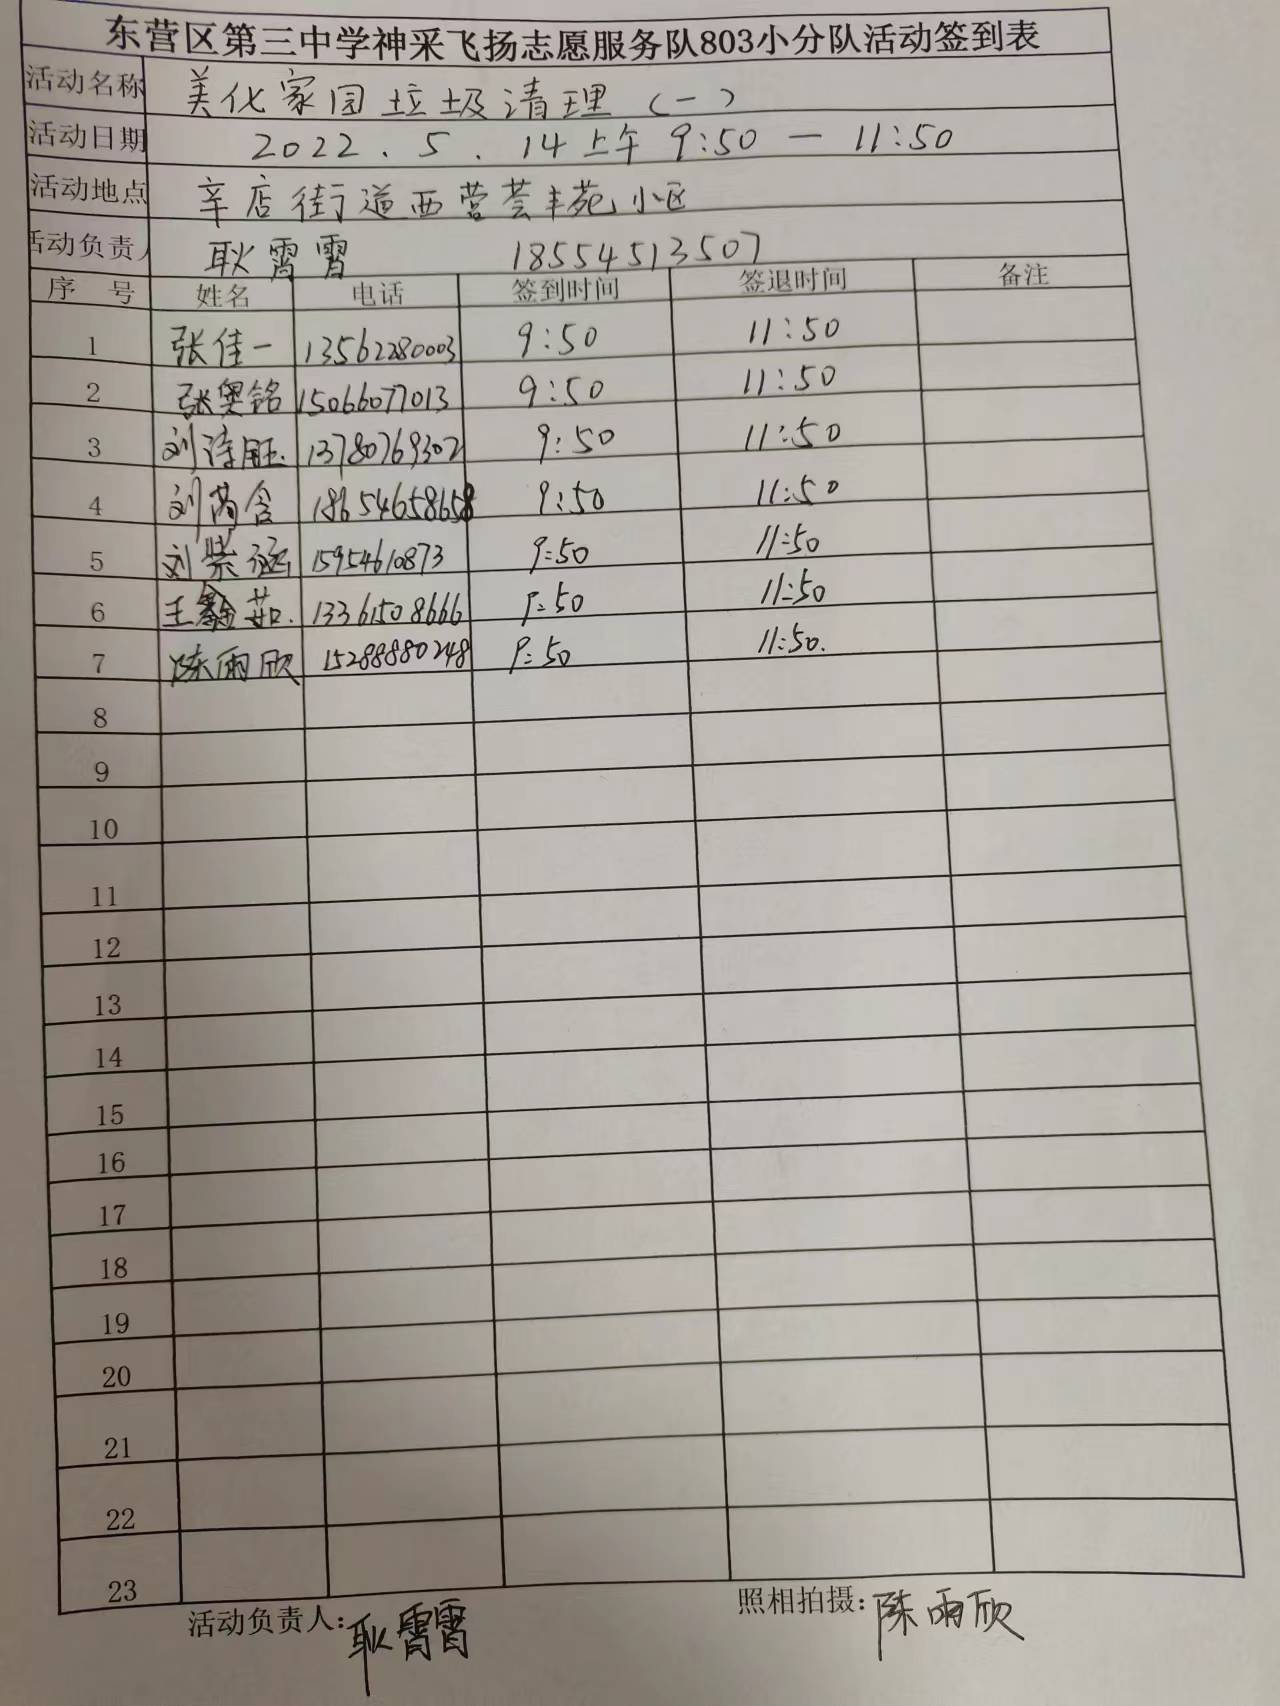 东营区第三中学神采飞扬志愿服务队803小分队活动签到表
活动名称 美化家园垃圾清理（一）
活动日期 2022.5.14上午9:50—11:50
活动地点 辛店街道西营荟丰苑小区
活动负责人 耿霄霄 18554513507
序号 姓名 电话 签到时间 签退时间 备注
1 张佳一 13562280003 9:50 11:50
2 张奥铭 15066077013 9:50 11:50
3 刘诗钰 13780769302 9:50 11:50
4 刘芮含 18654658658 9:50 11:50
5 刘紫涵 15954610873 9:50 11:50
6 王鑫茹 13361508666 9:50 11:50
7 陈雨欣 15288880248 9:50 11:50.
8
9
10
11
12
13
14
15
16
17
18
19
20
21
22
23
活动负责人：耿霄霄 照相拍摄：陈雨欣